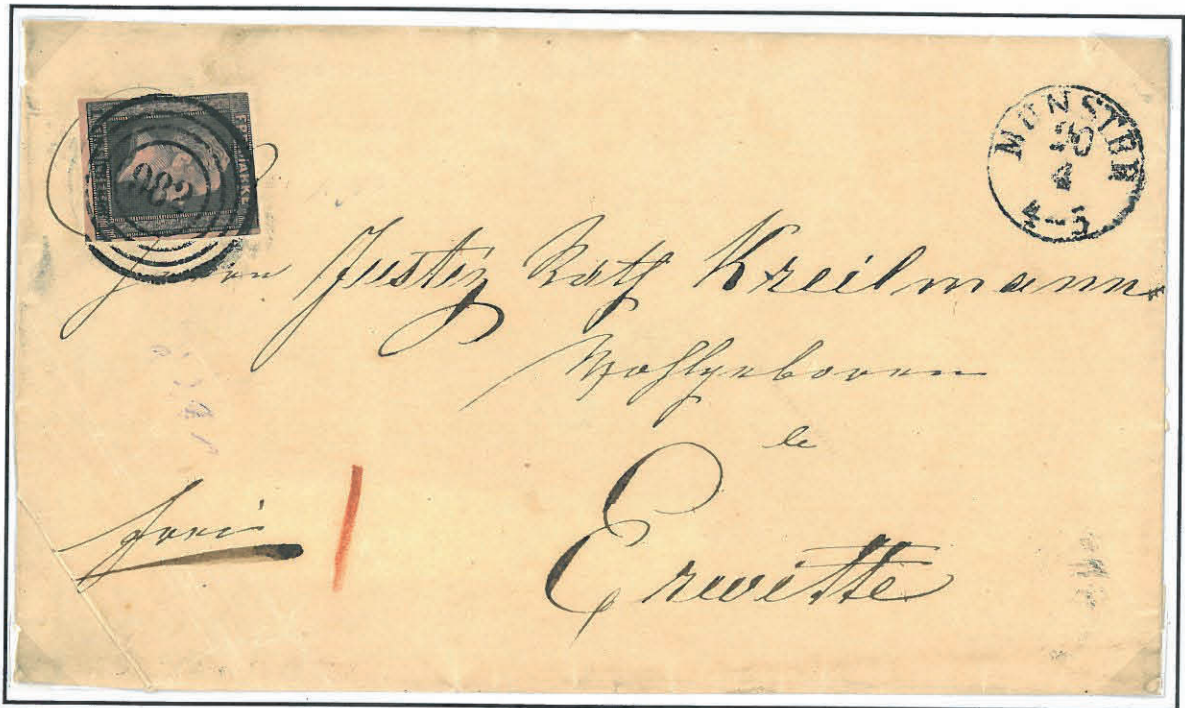 FREIMARKE
982
MÜNSTER
20
4
4-5
Herrn Justiz Rath Kreilmann
Wohlgeboren
Erwitte
frei